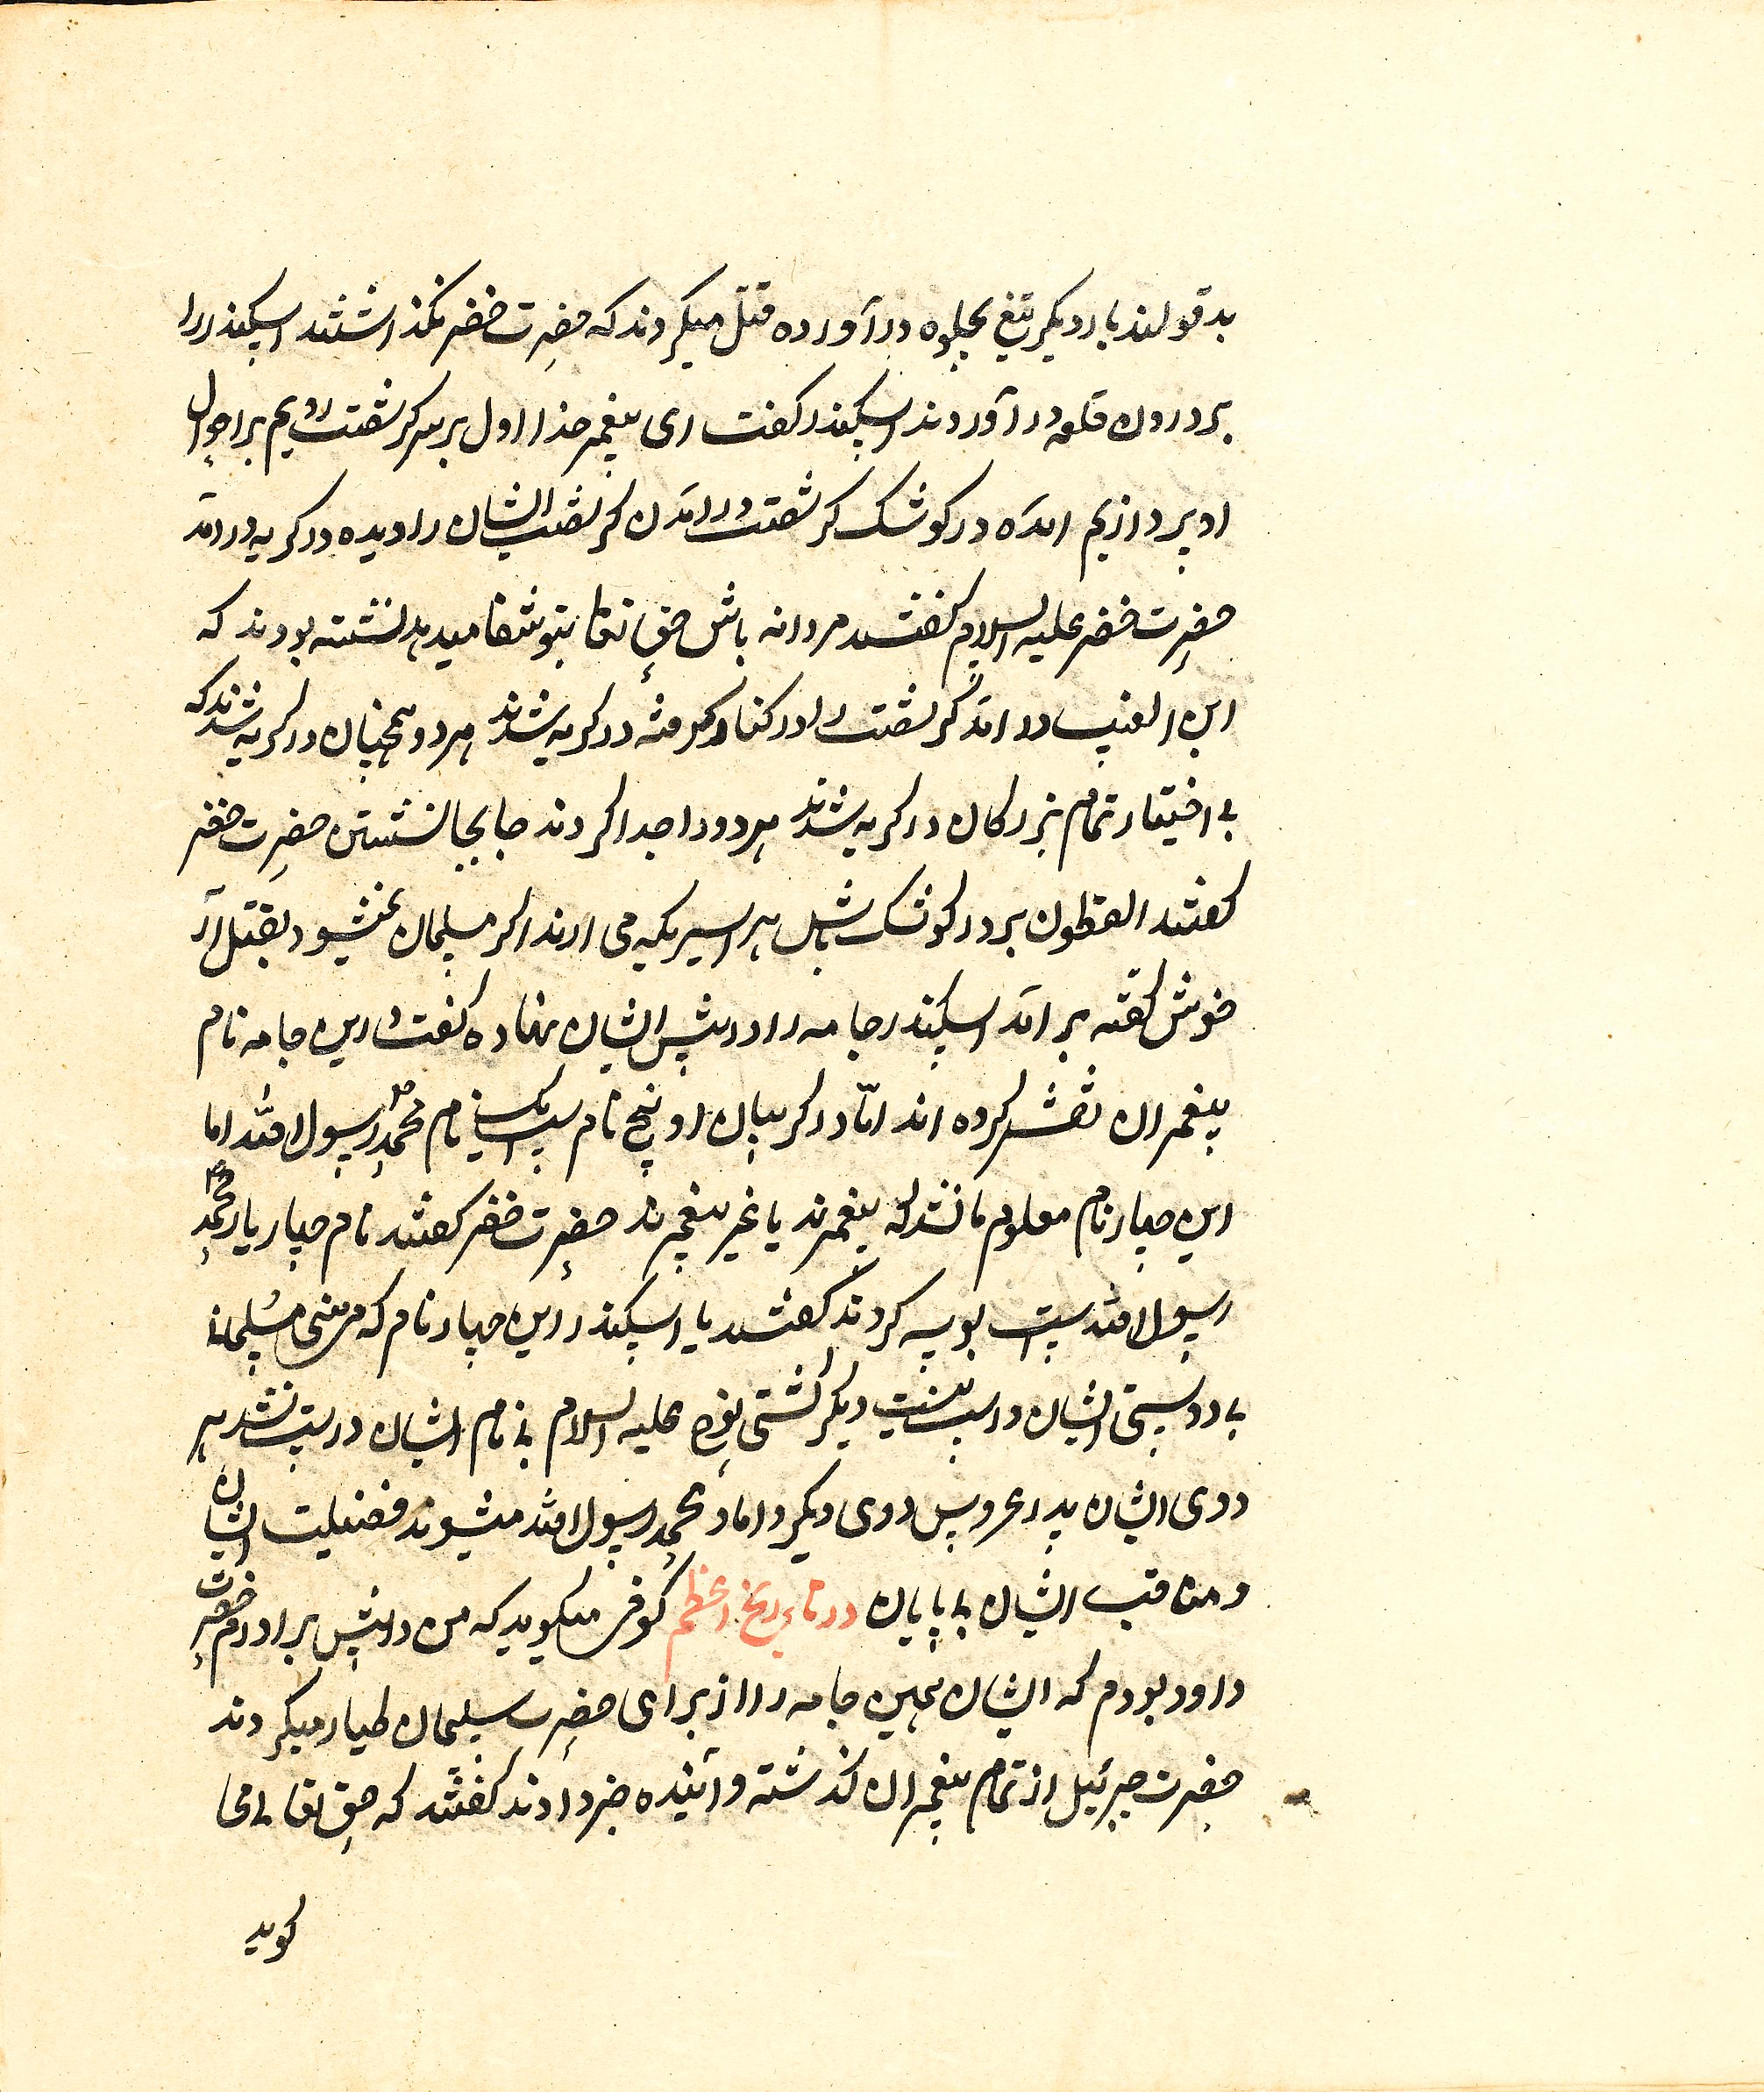 بد قولند بار دیکر تیغ بجلوه در آورده قتل میکردند که حضرت خضر نکذاشتند اسکندر را
بر درون قلعه در آوردند اسکندر کفت ای پیغمبر خدا اول بر سر کرشفت رویم بر احوال
او پردازیم امده در کوشک کرشفت در امدن کرشفت ایشان را دیده در کریه در امد
حضرت خضر علیه السلام کفتند مردانه باش حق تعا بتو شفا میدهد نشسته بودند که
این الغیب در امد کرشفت را در کنار کرفته در کریه شدند هر دو همچنان در کریه شدند که
بی اختیار تمام بزرکان در کریه شدند هر دو را جدا کردند جا بجا نشستن حضرت خضر
کفتند القطون بر در کوشک باش هر اسیریکه می ارند اکر مسلمان نمیشود بقتل آر
خوش کفته بر امد اسکندر جامه را در پیش ایشان نهاده کفت در این جامه نام
پیغمبران نقش کرده اند امّا در کریبان او پنج نام است یک نام محمد رسول الله اما
این چهار نام معلوم ما نشد که پیغمبرند یا غیر پیغمبرند حضرت خضر کفتند نام چهار یار محمد
رسول الله است بوسه کردند کفتند یا اسکندر این چهار نام که می بینی مسلمانی
بی دوستی ایشان درست نیست دیکر کشتی نوح علیه السلام بی نام ایشان درست نشد هر
دوی ایشان پدر عروس دوی دیکر داماد محمد رسول الله میشوند فضیلت ایشان
و مناقب ایشان بی پایان در تاریخ اعظم کوفی میکوید که من در پیش برادرم حضرت
داود بودم که ایشان همین جامه را از برای حضرت سلیمان طیار میکردند
حضرت جبرئیل از تمام پیغمبران کذشته و آینده خبر دادند کفتند که حق تعالی می
کوید